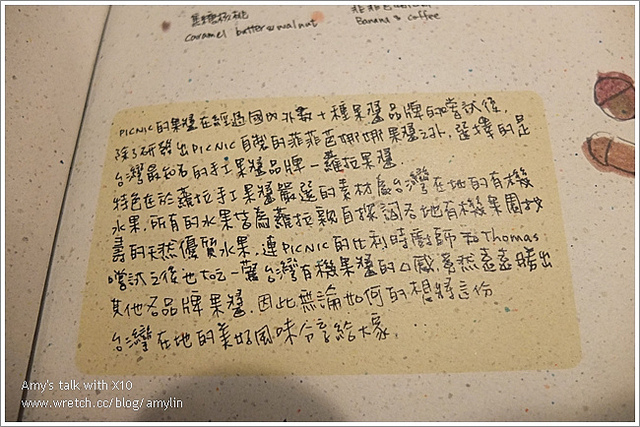 焦糖核桃
caramel butter & walnut
Banana & coffee
PICNIC的果醬在經過國內外數十種果醬品牌的嚐試後,
除了研發出PICNIC自製的菲菲芭娜娜果醬之外, 選擇的是
台灣最知名的手工果醬品牌－蘿拉果醬
特色在於蘿拉手工果醬嚴選的素材為台灣在地的有機
水果, 所有的水果皆為蘿拉親自探詢各地有機果園找
尋的天然優質水果, 連PICNIC的比利時廚師 Thomas
嚐試之後也大吃一驚台灣有機果醬的口感竟然遠遠勝出
其他各品牌果醬, 因此無論如何的想將這份
台灣在地的美好風味分享給大家.
Amy's talk with X10
www.wretch.cc/blog/amylin